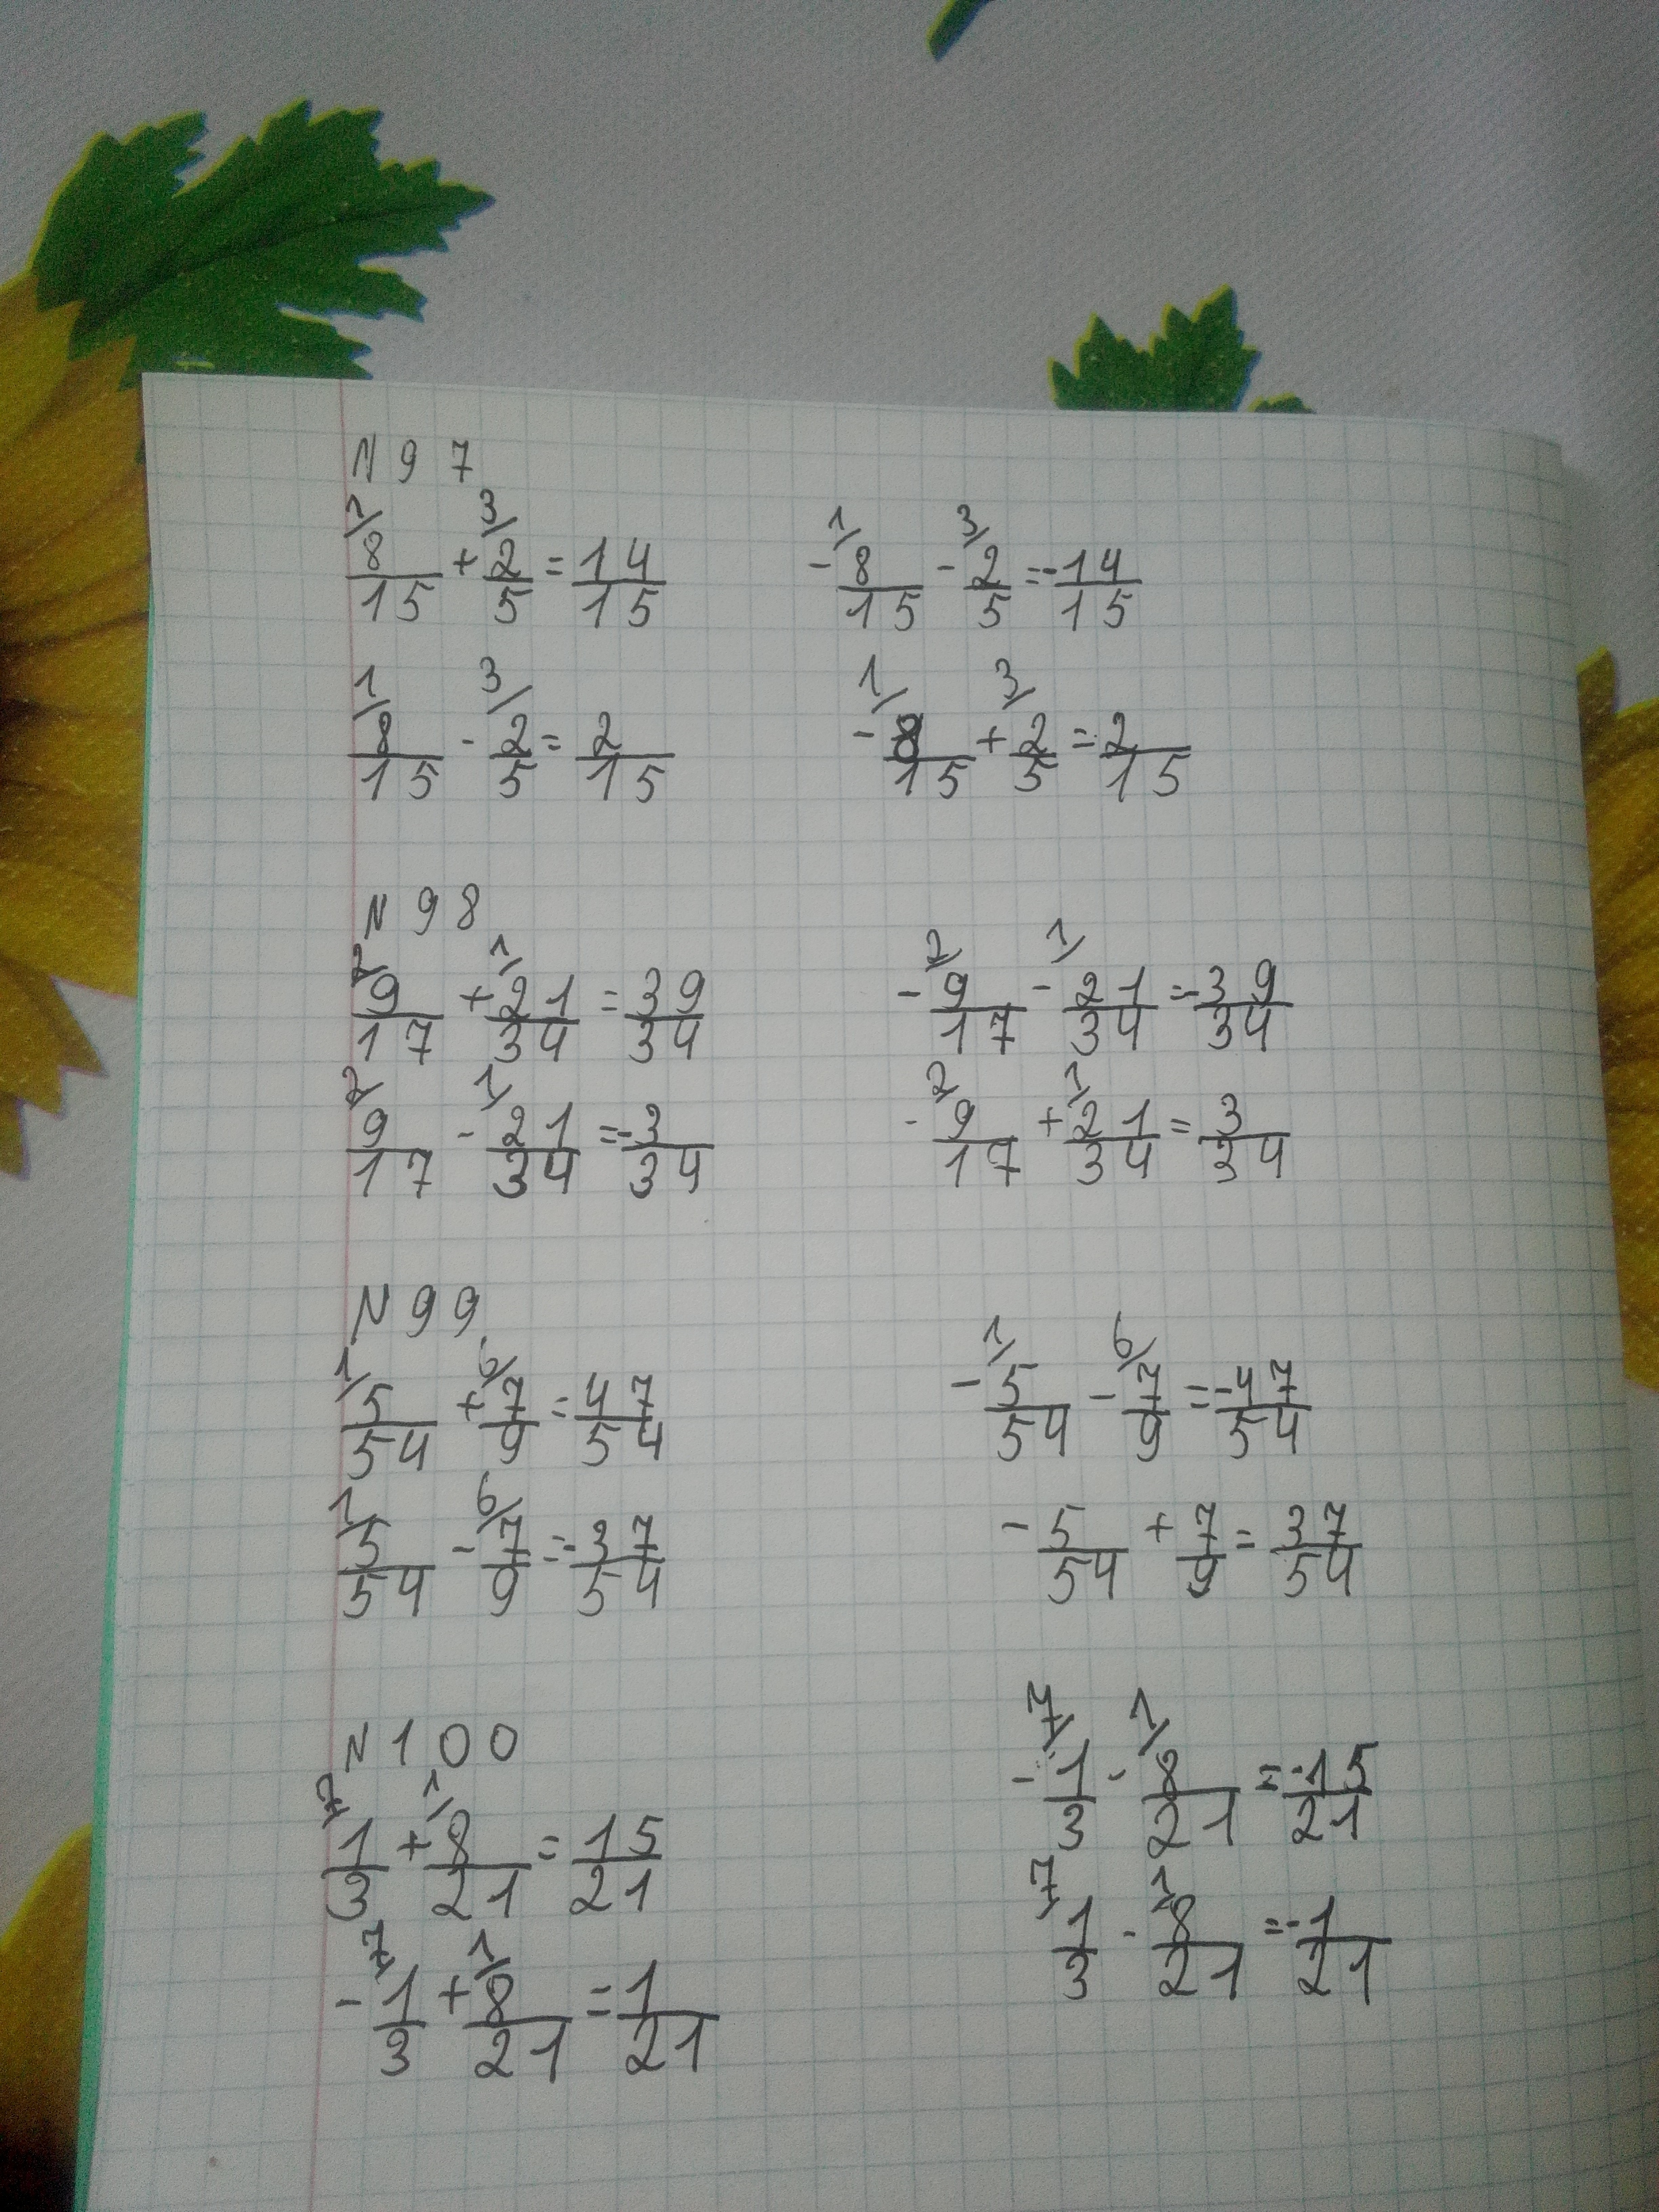 N 97
1/ 8/15 + 3/ 2/5 = 14/15
- 1/ 8/15 - 3/ 2/5 = -14/15
1/ 8/15 - 3/ 2/5 = 2/15
- 1/ 8/15 + 3/ 2/5 = -2/15
N 98
2/ 9/17 + 1/ 21/34 = 39/34
- 2/ 9/17 - 1/ 21/34 = -39/34
2/ 9/17 - 1/ 21/34 = -3/34
- 2/ 9/17 + 1/ 21/34 = 3/34
N 99
1/ 5/54 + 6/ 7/9 = 47/54
- 1/ 5/54 - 6/ 7/9 = -47/54
1/ 5/54 - 6/ 7/9 = -37/54
- 5/54 + 7/9 = 37/54
N 100
7/ 1/3 + 1/ 8/21 = 15/21
- 7/ 1/3 - 1/ 8/21 = -15/21
- 7/ 1/3 + 1/ 8/21 = 1/21
7/ 1/3 - 1/ 8/21 = -1/21